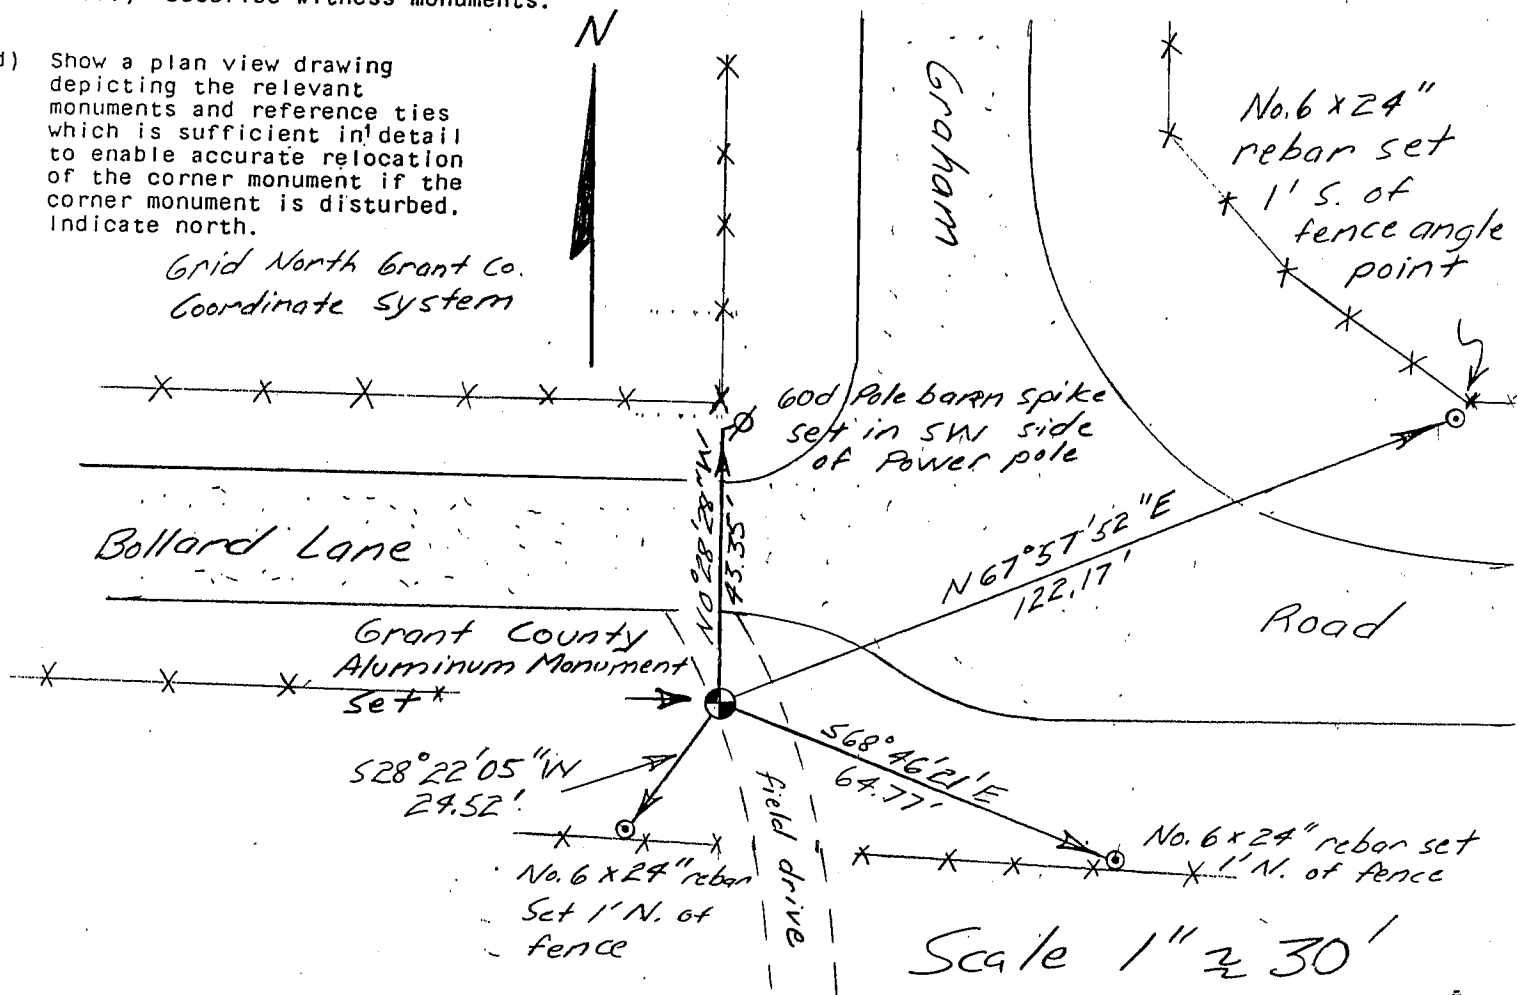 describe witness monuments.
d) Show a plan view drawing
depicting the relevant
monuments and reference ties
which is sufficient in detail
to enable accurate relocation
of the corner monument if the
corner monument is disturbed.
Indicate north.
N
Grid North Grant Co.
Coordinate System
Graham
No.6 x 24"
rebar set
1' S. of
fence angle
point
60d Pole baren spike
set in SW side
of Power pole
N0°28'28"W
43.35'
Bollard Lane
N67°57'52"E
122.17'
Road
Grant County
Aluminum Monument
Set
S28°22'05"W
24.52'
S68°46'21'E
64.77'
field drive
No. 6 x 24" rebar set
1' N. of fence
No. 6 x 24" rebar
Set 1' N. of
fence
Scale 1" ≈ 30'